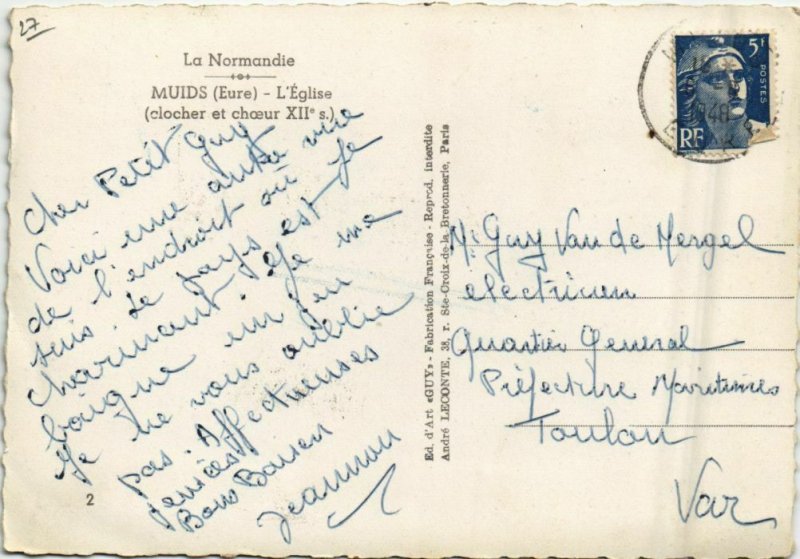 27
La Normandie
MUIDS (Eure) - L'Église
(clocher et chœur XIIᵉ s.)
Cher Petit Guy
Voici une autre vue
de l'endroit où je
suis. Le pays est
charmant. Je me
baigne un peu
Je ne vous oublie
pas. Affectueuses
pensées
Bons Baisers
Jeannou
2
Ed. d'Art «GUY» - Fabrication Française - Reprod. interdite
André LECONTE, 38, r. Ste-Croix-de-la-Bretonnerie, Paris
5F
POSTES
RF
948
Mr Guy Van de Mergel
électricien
Quartier General
Préfecture Maritimes
Toulon
Var